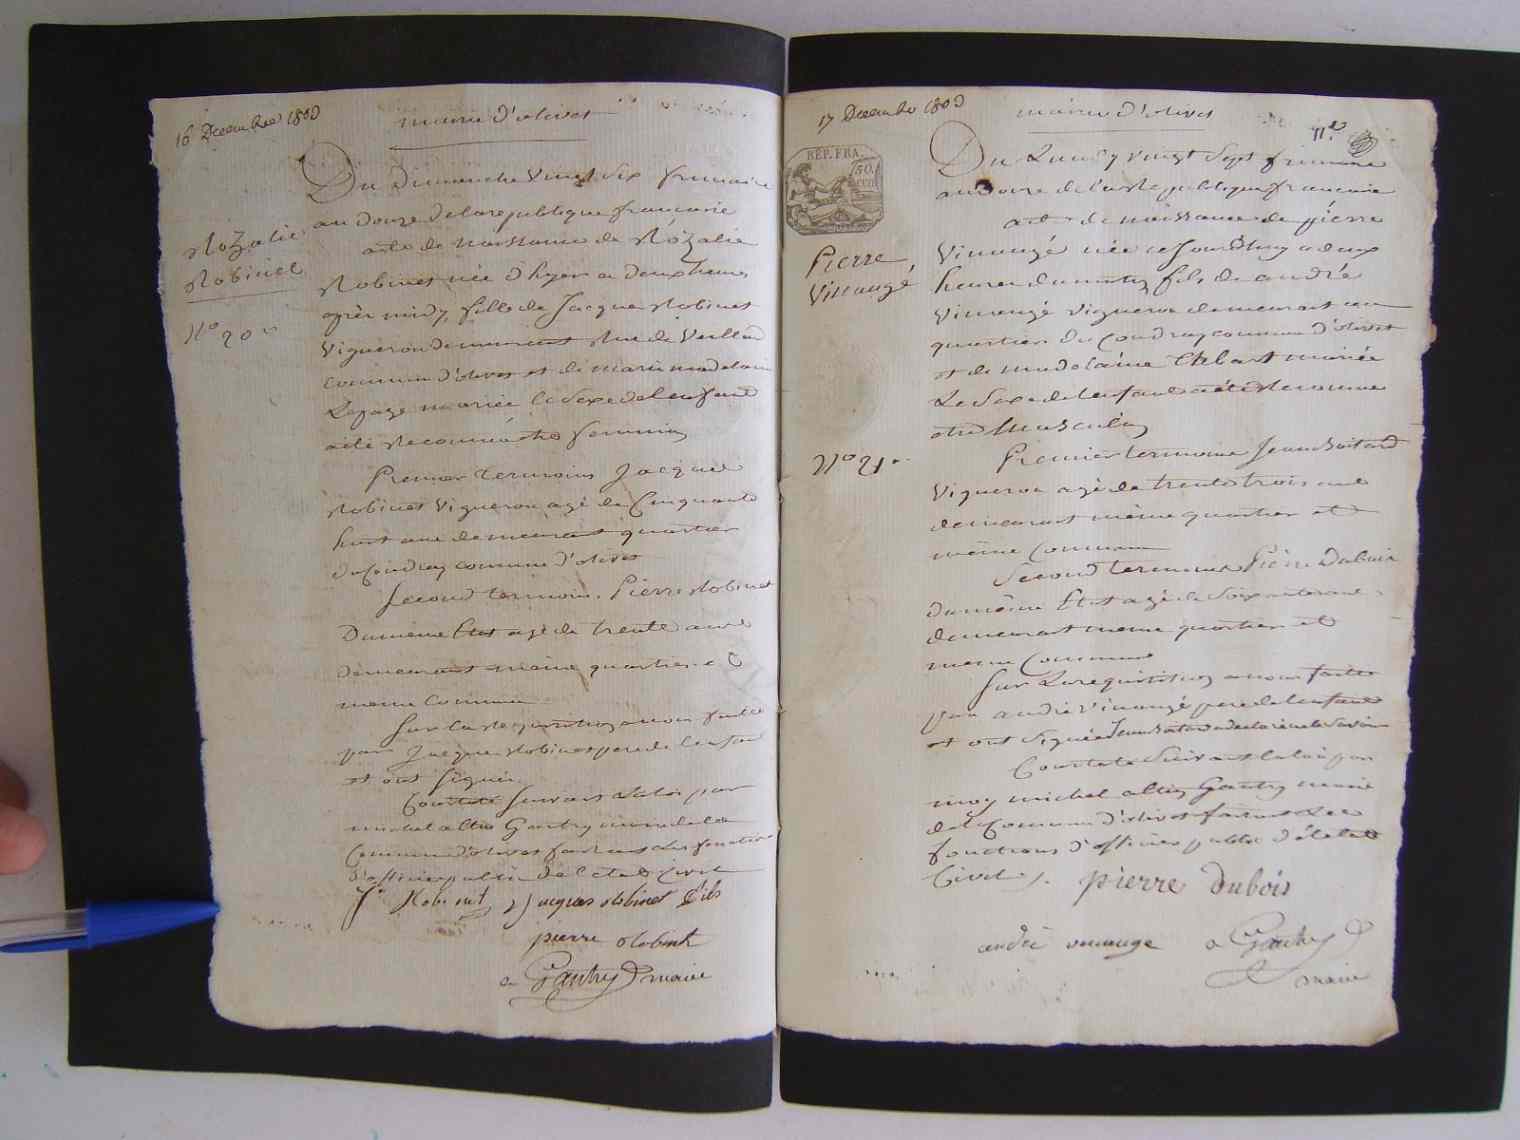 16 Decembre 1803
mairie d'olivet
Du Dimanche Vingt Six frimaire
an Douze de la republique francaise
acte de naissance de Rozalie
Rozalie
Robinet
Robinet née d'hyer a deux heures
après midy fille de Jacque Robinet
No 20
Vigneron demeurant Rue de
commune d'olivet et de marie madelaine
Lepage mariée le Sexe de lenfant
a été Reconnue être feminin
Premier termoins Jacque
Robinet Vigneron agé de Cinquante
huit ans demeurant quartier
du Coudray commune d'olivet
Second termoin. Pierre Robinet
Du même Etat agé de trente ans
demeurant même quartier et
meme Commune
Sur la Requisition a nous faitte
par Jacque Robinet pere de lenfant
et ont Signé
Constaté Suivant la loi par
michel altin Gautry maire de la
Commune d'olivet faisant Les fonctions
d'officier public de l'etat Civil
J. Robinet Jacques Robinet fils
pierre Robinet
a Gautry maire
17 Decembre 1803
mairie d'olivet
RÉP. FRA.
50.
Du Lundy vingt Sept frimaire
an Douze de la republique francaise
acte de naissance de pierre
Pierre
Vinauge
Vinaugé née ce Jourdhuy a deux
heures du matin fils de andré
Vinaugé vigneron demeurant au
quartier du Coudray commune d'olivet
et de madelaine mariée
Le Sexe de lenfant a été Reconnue
etre Masculin
No 21
Premier termoins Jean
Vigneron agé de trente trois ans
demeurant même quartier et
même Commune
Second termoins Pierre Dubois
du même Etat agé de Soixante ans
demeurant meme quartier et
meme Commune
Sur La requisition a nous faitte
par andré vinaugé pere de lenfant
et ont Signé Jean a declaré ne le Savoir
Constaté Suivant la loi par
moy michel altin Gautry maire
de la Commune d'olivet faisant Les
fonctions d'officier public d'état
Civil pierre Dubois
andré vinauge a Gautry
maire